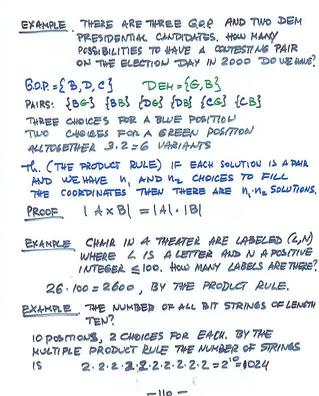 EXAMPLE THERE ARE THREE G.O.P AND TWO DEM
PRESIDENTIAL CANDIDATES. HOW MANY
POSSIBILITIES TO HAVE A CONTESTING PAIR
ON THE ELECTION DAY IN 2000 DO WE HAVE?
G.O.P. = {B, D, C} DEM = {G, B}
PAIRS: {BG} {BB} {DG} {DB} {CG} {CB}
THREE CHOICES FOR A BLUE POSITION
TWO CHOICES FOR A GREEN POSITION
ALTOGETHER 3·2=6 VARIANTS
Th. (THE PRODUCT RULE) IF EACH SOLUTION IS A PAIR
AND WE HAVE n₁ AND n₂ CHOICES TO FILL
THE COORDINATES THEN THERE ARE n₁·n₂ SOLUTIONS.
PROOF |A×B| = |A|·|B|
EXAMPLE CHAIR IN A THEATER ARE LABELED (L,N)
WHERE L IS A LETTER AND N A POSITIVE
INTEGER ≤100. HOW MANY LABELS ARE THERE?
26·100=2600, BY THE PRODUCT RULE.
EXAMPLE THE NUMBER OF ALL BIT STRINGS OF LENGTH
TEN?
10 POSITIONS, 2 CHOICES FOR EACH. BY THE
MULTIPLE PRODUCT RULE THE NUMBER OF STRINGS
IS 2·2·2·2·2·2·2·2·2·2=2¹⁰=1024
—110—